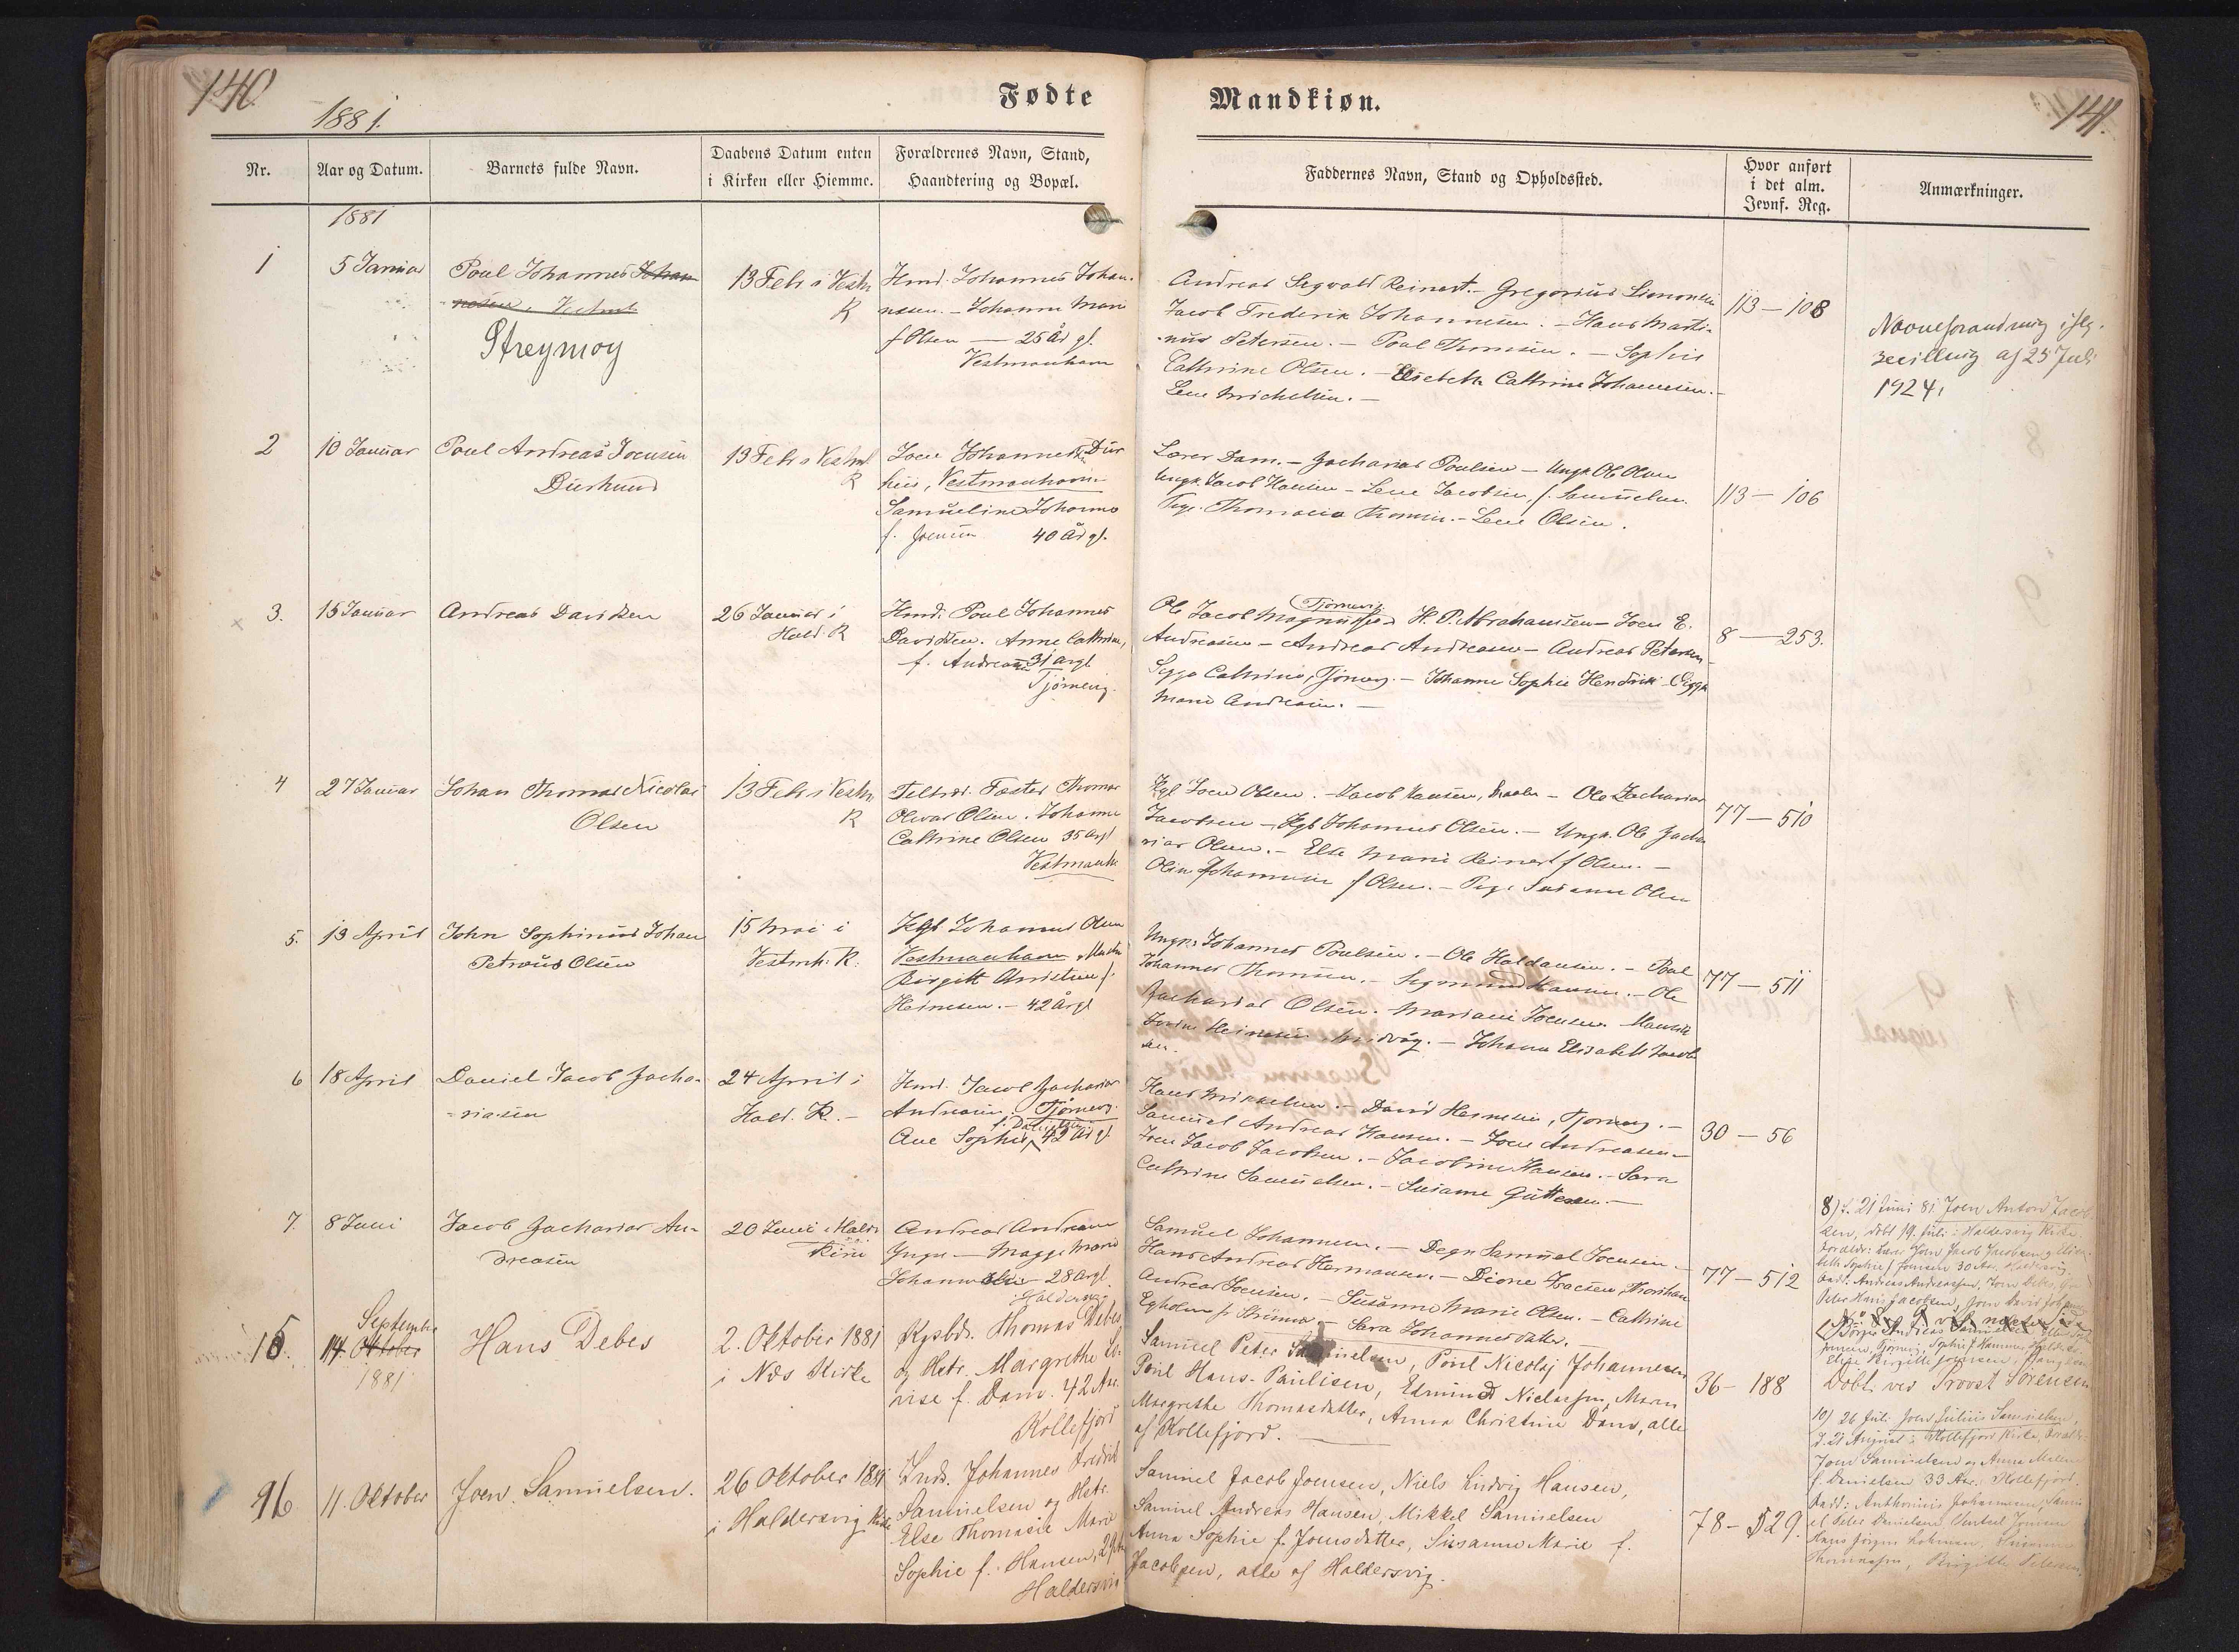 140
1881.
Fødte
Mandkiøn.
141.
Nr.
Aar og Datum.
Barnets fulde Navn.
Daabens Datum enten
i Kirken eller Hiemme.
Forældrenes Navn, Stand,
Haandtering og Bopæl.
Faddernes Navn, Stand og Opholdssted.
Hvor anført
i det alm.
Jevnf. Reg.
Anmærkninger.
1881
1
5 Januar
Poul Johannes Johan
nesen, Vestmh
Streymoy
13 Feb. i Vestm
K
Hmd. Johannes Johan-
nesen. - Johanne Marie
f Olsen — 25 År gl.
Vestmanhavn
Andreas Segvald Reinert. - Gregorius Simonsen
Jacob Frederik Johannesen. - Hans Marti-
nus Petersen. - Poul Thomsen. - Sophie
Cathrine Olsen. - Elsebeth Cathrine Johannesen. -
Lene Michelsen. -
113 - 108
Navneforandring iflg.
bevilling af 25 Juli
1924.
2
10 Januar
Poul Andreas Joensen
Diurhuus
13 Feb. i Vestmh
K
Joen Johannes Diur
huus, Vestmanhavn
Samueline Johanne
f. Joensen 40 År gl.
Lærer Dam. - Zacharias Poulsen - Ungk. Ole Olsen
Ungk. Jacob Hansen - Lene Jacobsen, f. Samuelsen.
Pige. Thomasia Thomsen. - Lene Olsen.
113 - 106
3.
15 Januar
Andreas Davidsen
26 Januar i
Hald. K
Hmd. Poul Johannes
Davidsen. Anne Cathrine,
f. Andreasen 31 årgl
Tjørnevig.
Ole Jacob Magnussen Tjørnevig H. P. Abrahamsen - Joen E.
Andreasen - Andreas Andreasen - Andreas Petersen
Sigga Cathrine, Tjørnevig. - Johanne Sophie Hendrik - Sigga
Marie Andreasen. -
8 - 253.
4
27 Januar
Johan Thomas Nicolai
Olsen
13 Feb. i Vestm
K
Fæster Thomas
Olevar Olsen. Johanne
Cathrine Olsen 35 årgl
Vestmanh
Kgb Joen Olsen. - Jacob Hansen, - Ole Zacharias
Jacobsen - Kgb Johannes Olsen. - Ungk. Ole Zacha
rias Olsen. - Else Marie Reinert f Olsen. -
Johannesen f Olsen. - Pige Susanne Olsen
77 - 510
5.
13 April
John Sophinus Johan
Petraus Olsen
15 Mai i
Vestmh. K.
Kgb Johannes Olsen
Vestmanhavn,
Birgitt Christine f.
Heinesen. - 42 Årgl
Ungk. Johannes Poulsen. - Ole Haldansen. - Poul
Johannes Thomsen. - Sigmund Hansen. - Ole
Zacharias Olsen. Mariane Joensen.
Heinesen, Kvivig. - Johanne Elisabeth Jacob
sen.
77 - 511
6
18 April
Daniel Jacob Zacha-
-riasen
24 April i
Hald. K. -
Hmd. Jacob Zacharias
Andreasen, Tjørnevig.
Ane Sophie f. Danielsen 42 År gl.
Hans Mikkelsen. - David Heinesen, Tjørnevig. -
Samuel Andreas Hansen. - Joen Andreasen -
Joen Jacob Jacobsen. - Jacobine Hansen. - Sara
Cathrine Samuelsen. - Susanne Guttesen. -
30 - 56
7.
8 Juni
Jacob Zacharias An-
dreasen
20 Juni i Hald.
Kirke
Andreas Andreasen
- Magga Marie
28 årgl.
Haldersvig
Samuel Johannesen. - Degn Samuel Joensen. -
Hans Andreas Hermansen. - Dione Isacsen, Thorshavn
Andreas Joensen. - Susanne Marie Olsen. - Cathrine
Egholm f. Strømø. - Sara Johannesdatter.
77 - 512
8) f. 21 Juni 81 Joen Anton Jacob
sen, døbt 19. Juli i Haldersvig Kirke.
Forældr: Lærer Joen Jacob Jacobsen og Elisa
beth Sophie f. Joensen 30 Aar. Haldersvig.
Fadd: Andreas Andreassen, Joen Debes,
Peter Hans Jacobsen, Joen David
15.
Septembr
14. Oktober
1881
Hans Debes
2. Oktober 1881
i Næs Kirke
Kgsbdr. Thomas Debes
og Hstr. Margrethe Lo-
vise f. Dam. 42 Aar.
Kollefjord
Samuel Peter Samuelsen, Poul Nicolaj Johannesen
Poul Hans Paulisen, Edmund Niclassen, Maren
Margrethe Thomasdatter, Anna Christine Dam, alle
af Kollefjord.
36 - 188
Døbt ved Provst Sørensen
16
11. Oktober
Joen Samuelsen.
26 Oktober 1881
i Haldersvig Kirke
Inds. Johannes Fredrik
Samuelsen og Hstr.
Else Thomasie Marie
Sophie f. Hansen, 29 Aar
Haldersvig
Samuel Jacob Joensen, Niels Ludvig Hansen,
Samuel Andreas Hansen, Mikkel Samuelsen
Anna Sophie f. Joensdatter, Susanne Marie f.
Jacobsen, alle af Haldersvig.
78 - 529.
10) 26 Juli Joen Julius Samuelsen,
d. 21 August i Kollefjord Kirke, Forældr:
Joen Samuelsen og Anna Malene
f. Danielsen 33 Aar. Kollefjord.
Fadd: Anthonius Johannesen, Samu
el Peter Danielsen,
Hans Jørgen
Thomassen, Birgitte